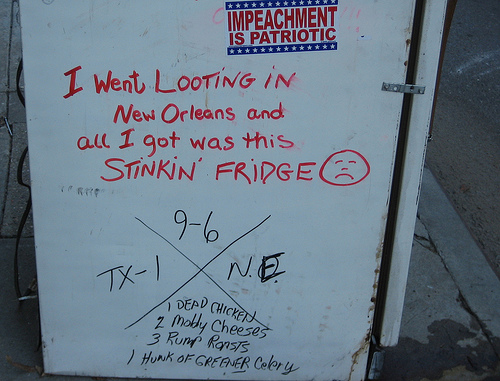 IMPEACHMENT
IS PATRIOTIC
I Went LOOTING iN
NEW ORLEANS and
all I got was this
STiNKiN' FRiDGE
9-6
TX-1 N.E.
1 DEAD CHICKEN
2 Moldy Cheeses
3 Rump Roasts
1 HUNK OF GREENER Celery